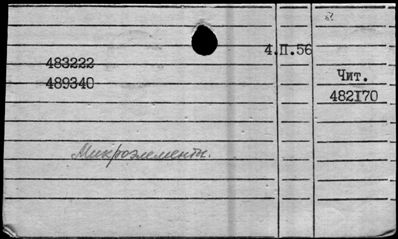 4.П.56
483222
Чит.
489340
482170
Микроэлементы.